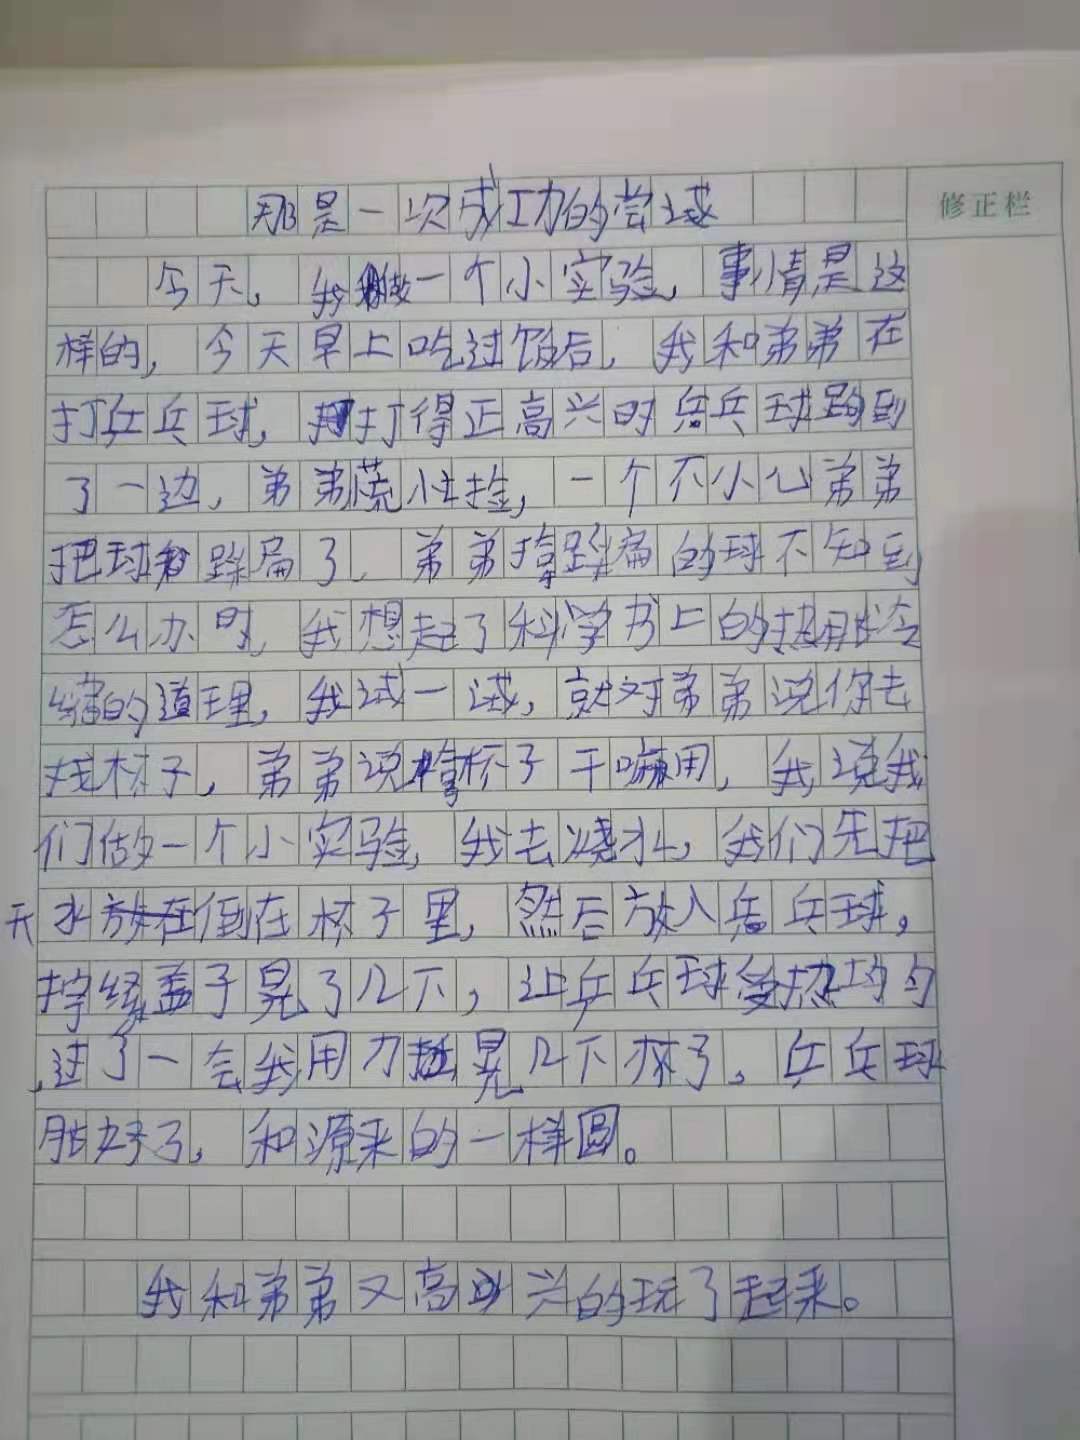 修正栏
那是一次成功的尝试
今天，我做一个小实验，事情是这
样的，今天早上吃过饭后，我和弟弟在
打乒乓球，打得正高兴时乒乓球跑到
了一边，弟弟慌忙捡，一个不小心弟弟
把球踩扁了，弟弟拿踩扁的球不知到
怎么办时，我想起了科学书上的热胀冷
缩的道理，我试一试，就对弟弟说你去
找杯子，弟弟说拿杯子干嘛用，我说我
们做一个小实验，我去烧水，我们先把
开水倒在杯子里，然后放入乒乓球，
拧紧盖子晃了几下，让乒乓球受热均匀
，过了一会我用力晃几下杯子。乒乓球
胀好了，和源来的一样圆。
我和弟弟又高兴的玩了起来。